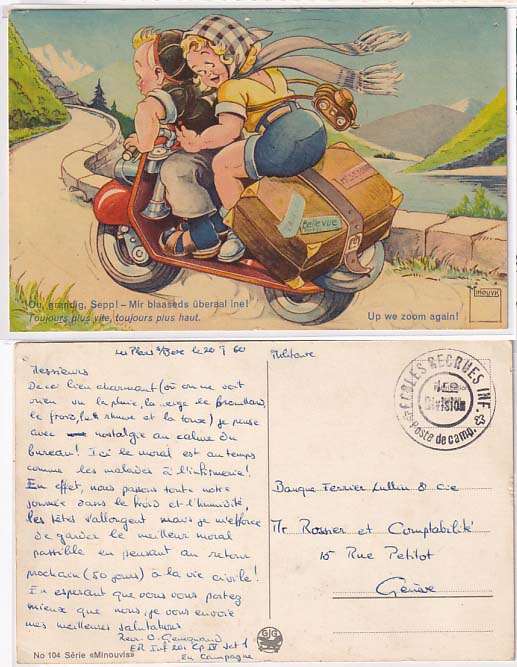 Bellevue
MINOUVIS
Ou, grandig, Seppl – Mir blaaseds überaal ine!
Toujours plus vite, toujours plus haut.
Up we zoom again!
Les Plans s/Bex le 20 60
Militaire
Messieurs
De ce lieu charmant (où on ne voit
rien vu la pluie, la neige le brouillard,
le froid, le rhume et la toux) je pense
avec nostalgie au calme du
bureau! Ici le moral est au temps
comme les malades à l'infirmerie!
En effet, nous passons toute notre
journée dans le froid et l'humidité
les têtes s'allongent mais je m'efforce
de garder le meilleur moral
possible en pensant au retour
prochain (50 jours) à la vie civile!
En espérant que vous vous portez
mieux que nous, je vous envoie
mes meilleures salutations
Recr. O.
ER Inf 201 Cp IV
En Campagne
ECOLES RECRUES INF.
DIVISION
Poste de camp.
Banque Ferrier Lullin & Cie
Mr Rossier et Comptabilité
15 Rue Petitot
Genève
No 104 Série «Minouvis»